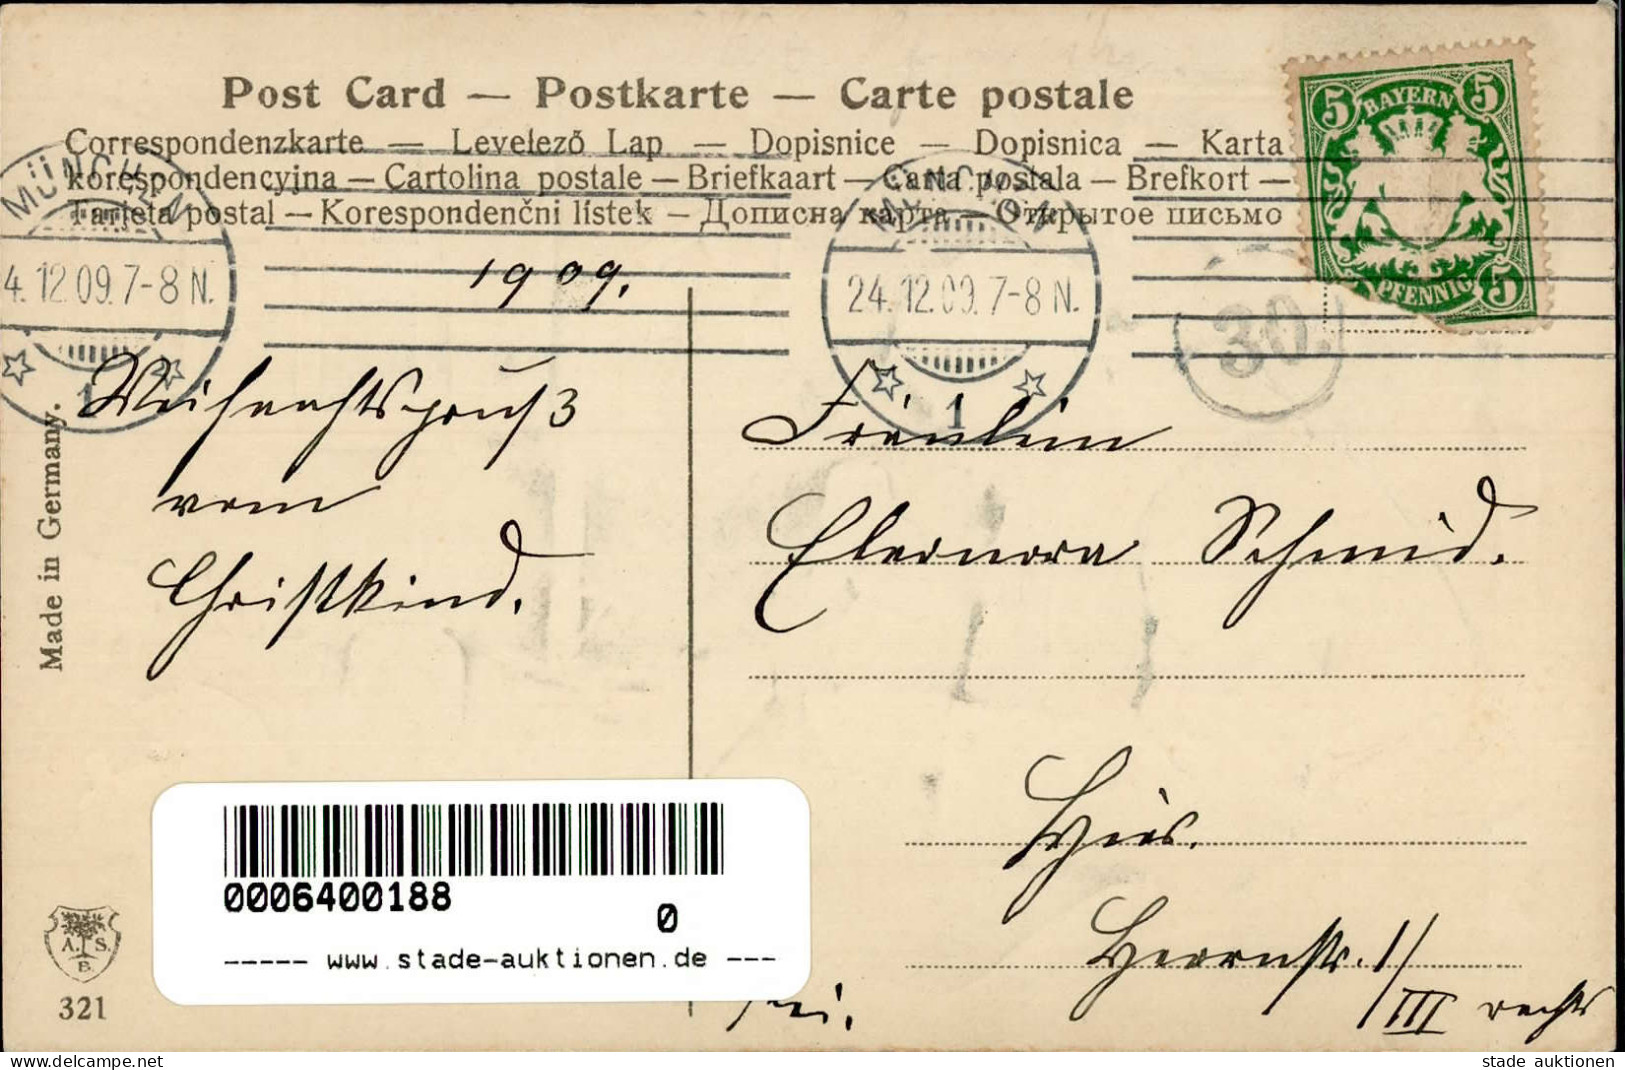 Post Card — Postkarte — Carte postale
Correspondenzkarte — Levelező Lap — Dopisnice — Dopisnica — Karta
korespondencyjna — Cartolina postale — Briefkaart — Carta postala — Brefkort —
Tarjeta postal — Korespondenčni lístek — Дописна карта — Открытое письмо
5 BAYERN 5
PFENNIG 5
MÜNCHEN
4.12.09.7-8 N.
1
MÜNCHEN
24.12.09.7-8 N.
1
30.
1909.
Weihnachtsgruß
vom
Christkind.
Fräulein
Eleonora Schmid.
Hier.
Herrnstr. 1/
III rechts
frei.
Made in Germany.
A. S.
B.
321
0006400188
0
----- www.stade-auktionen.de ---
www.delcampe.net
stade auktionen